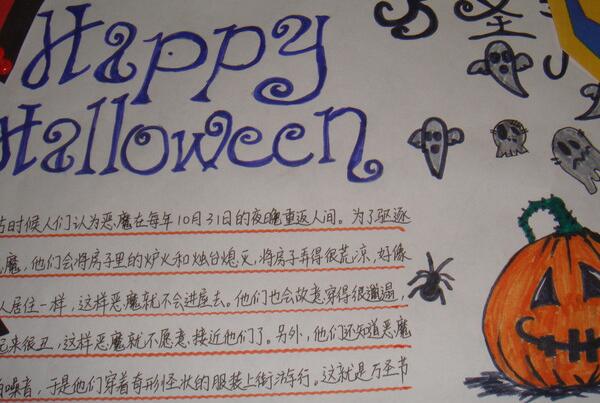 Happy
Halloween
圣
古时候人们认为恶魔在每年10月31日的夜晚重返人间。为了驱逐
恶魔，他们会将房子里的炉火和烛台熄灭，将房子弄得很荒凉，好像
人居住一样，这样恶魔就不会进屋去。他们也会故意穿得很邋遢，
起来很丑，这样恶魔就不愿意接近他们了。另外，他们还知道恶魔
噪音，于是他们穿着奇形怪状的服装上街游行。这就是万圣节